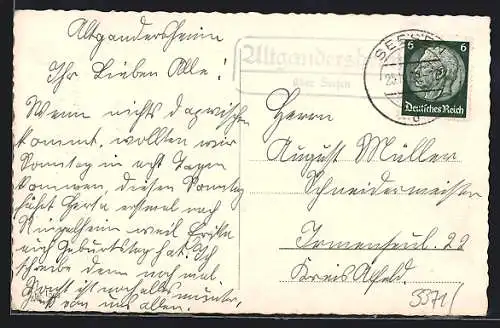 Altgandersheim
Ihr Lieben Alle!
Wenn nichts dazwischen
kommt, wollten wir
Sonntag in acht Tagen
kommen, diesen Sonntag
fährt Herta erstmal nach
Ringelheim weil Erika
auch Geburtstag hat. Ich
schreibe dann noch mal
sonst ist noch alles munter,
von uns allen.
Altgandersheim
über Seesen
SEESEN
6 6
Deutsches Reich
Herrn
August Müller
Schneidermeister
Irmenseul. 22
Kreis Alfeld.
5571